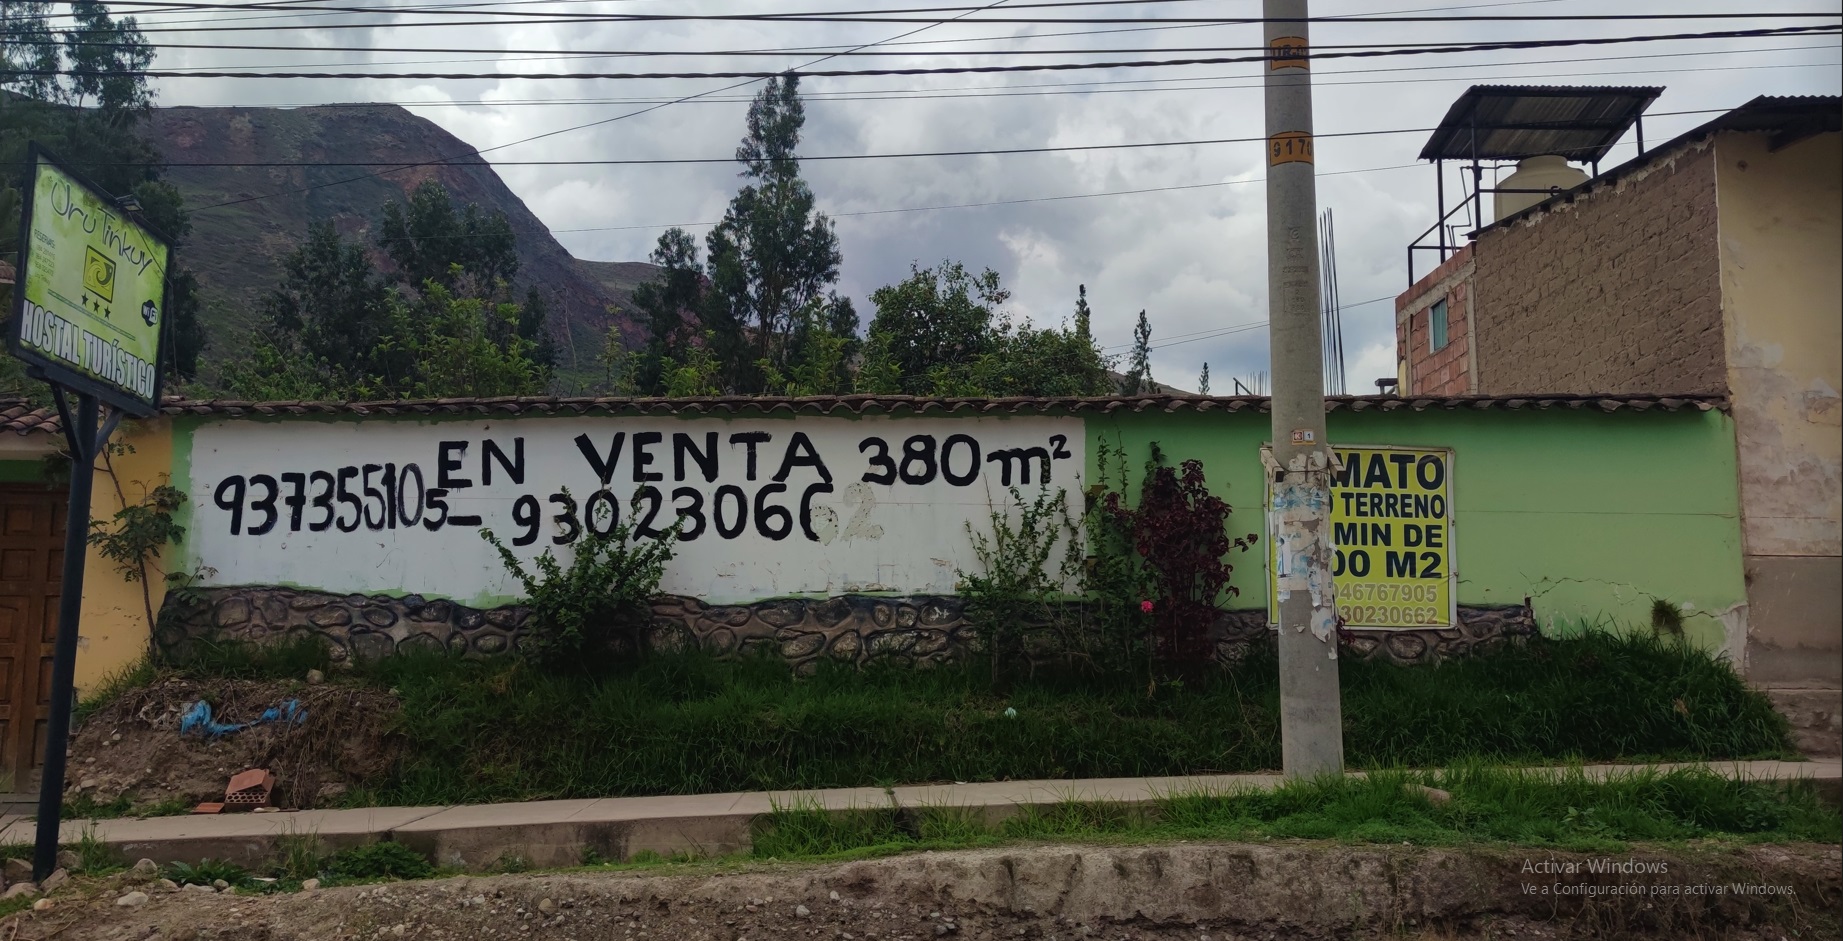 Uru Tinkuy
RESERVAS:
WI FI
HOSTAL TURÍSTICO
EN VENTA 380m²
937355105_ 930230662
9170
MATO
TERRENO
MIN DE
00 M2
946767905
930230662
Activar Windows
Ve a Configuración para activar Windows.